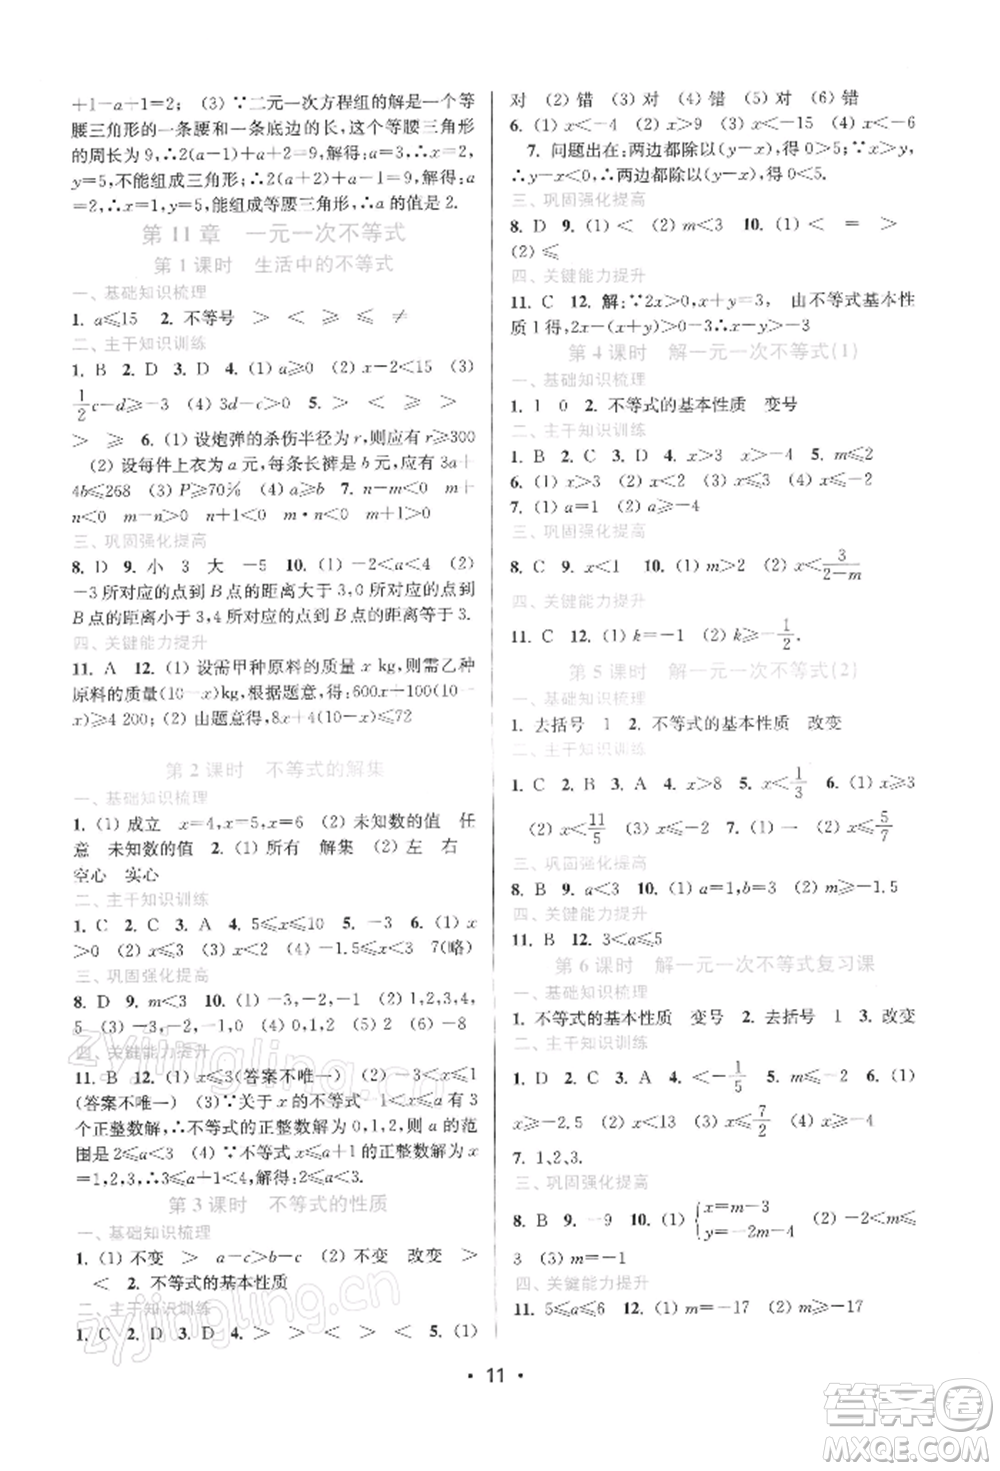 +1-a+1=2; (3)∵二元一次方程组的解是一个等
腰三角形的一条腰和一条底边的长,这个等腰三角形
的周长为9,∴2(a-1)+a+2=9,解得:a=3,∴x=2,
y=5,不能组成三角形;∴2(a+2)+a-1=9,解得:a=
2,∴x=1,y=5,能组成等腰三角形,∴a的值是2.
第11章 一元一次不等式
第1课时 生活中的不等式
一、基础知识梳理
1. a⩽15 2. 不等号 > < ⩽ ⩾ ≠
二、主干知识训练
1. B 2. D 3. D 4. (1) a⩾0 (2) x-2<15 (3)
1/2c-d⩾-3 (4) 3d-c>0 5. > < ⩾ > >
> ⩾ 6. (1) 设炮弹的杀伤半径为r,则应有r⩾300
(2) 设每件上衣为a元,每条长裤是b元,应有3a+
4b⩽268 (3) P⩾70% (4) a⩾b 7. n-m<0 m+
n<0 m-n<0 n+1<0 m·n<0 m+1>0
三、巩固强化提高
8. D 9. 小 3 大 -5 10. (1) -2<a<4 (2)
-3所对应的点到B点的距离大于3,0所对应的点到
B点的距离小于3,4所对应的点到B点的距离等于3.
四、关键能力提升
11. A 12. (1) 设需甲种原料的质量x kg,则需乙种
原料的质量(10-x)kg,根据题意,得:600x+100(10-
x)⩾4 200;(2) 由题意得,8x+4(10-x)⩽72
第2课时 不等式的解集
一、基础知识梳理
1. (1) 成立 x=4,x=5,x=6 (2) 未知数的值 任
意 未知数的值 2. (1) 所有 解集 (2) 左 右
空心 实心
二、主干知识训练
1. C 2. C 3. A 4. 5⩽x⩽10 5. -3 6. (1) x
>0 (2) x⩽3 (3) x>-1 (4) -1.5⩽x⩽3 7(略)
三、巩固强化提高
8. D 9. m<3 10. (1) -3,-2,-1 (2) 1,2,3,4,
5 (3) -3,-2,-1,0 (4) 0,1,2 (5) 2 (6) -8
四、关键能力提升
11. B 12. (1) x⩽3(答案不唯一) (2) -4<x⩽1
(答案不唯一) (3)∵关于x的不等式 x<a只有3
个正整数解,∴不等式的正整数解为1,2,3,则a的范围
是3<a⩽4 (4)∵不等式x⩽a的正整数解
=1,2,3,∴3⩽a<4,∴a能取的最小值为3.
第3课时 不等式的性质
一、基础知识梳理
1. (1) 不变 > a-c>b-c (2) 不变 改变 > >
< < 2. 不等式的基本性质
二、主干知识训练
1. C 2. D 3. D 4. < > > > < 5. (1)
对 (2) 错 (3) 对 (4) 对 (5) 对 (6) 错
6. (1) x<-4 (2) x>9 (3) x<-15 (4) x<-6
7. 问题出在:两边都除以(y-x),得0>5.∵x>y,
∴y-x<0,∴两边都除以(y-x)得0<5.
三、巩固强化提高
8. D 9. (1) < (2) > 10. (1) < = >
(2) ⩽
四、关键能力提升
11. C 12. 解:∵2x>0,x+y=3, 由不等式基本性
质1得,2x-(x+y)>0-3∴x-y>-3
第4课时 解一元一次不等式(1)
一、基础知识梳理
1. 1 0 2. 不等式的基本性质 变号
二、主干知识训练
1. C 2. B 3. D 4. x>3 5. m⩽2
6. (1) x>2 (2) x⩾1 (3) x<3 (4) x⩽3
7. (1) a=1 (2) a⩾-4
三、巩固强化提高
8. C 9. x<1 10. (1) m>2 (2) x<3/(2-m)
四、关键能力提升
11. C 12. (1) k=-1 (2) k⩾-1/2.
第5课时 解一元一次不等式(2)
一、基础知识梳理
1. 去括号 1 2. 不等式的基本性质 改变
二、主干知识训练
1. C 2. B 3. D 4. x>8 5. x<1/3 6. (1) x⩾3
(2) x<11/5 (3) x⩽-2 7. (1) 一 (2) x⩽5/7
三、巩固强化提高
8. B 9. a<3 10. (1) a=1,b=3 (2) m⩾-1.5
四、关键能力提升
11. B 12. 3<a⩽5
第6课时 解一元一次不等式复习课
一、基础知识梳理
1. 不等式的基本性质 变号 2. 去括号 1 3. 改变
二、主干知识训练
1. D 2. A 3. C 4. <-1/5 5. m⩾2 6. (1)
x⩾-2.5 (2) x⩽4 (3) x⩽7/2 (4) x>-2
7. 1,2,3.
三、巩固强化提高
8. B 9. -9 10. (1) {x=m-3 y=-2m-4 (2) -2<m⩽
3 (3) m=-1
四、关键能力提升
11. 5⩽a⩽6 12. (1) m=-17 (2) m⩾-17
• 11 •
zyjingling.com
zyjingling.cn
答案圈
MXQE.COM